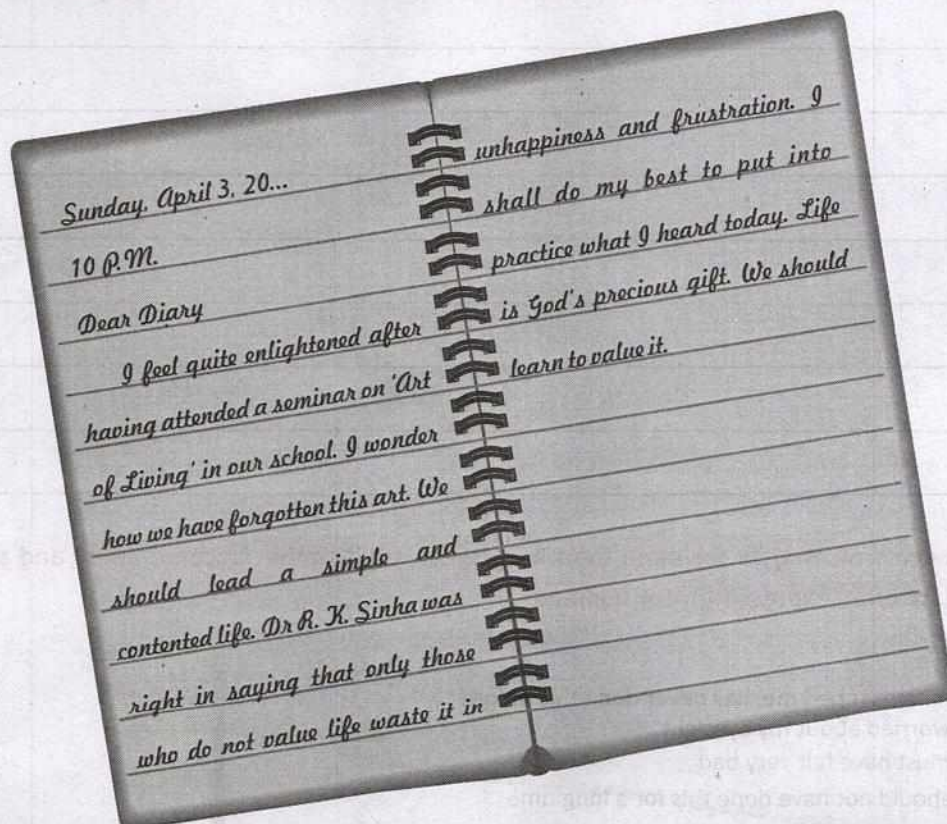 Sunday, April 3, 20...
10 P.M.
Dear Diary
I feel quite enlightened after
having attended a seminar on 'Art
of Living' in our school. I wonder
how we have forgotten this art. We
should lead a simple and
contented life. Dr R. K. Sinha was
right in saying that only those
who do not value life waste it in
unhappiness and frustration. I
shall do my best to put into
practice what I heard today. Life
is God's precious gift. We should
learn to value it.